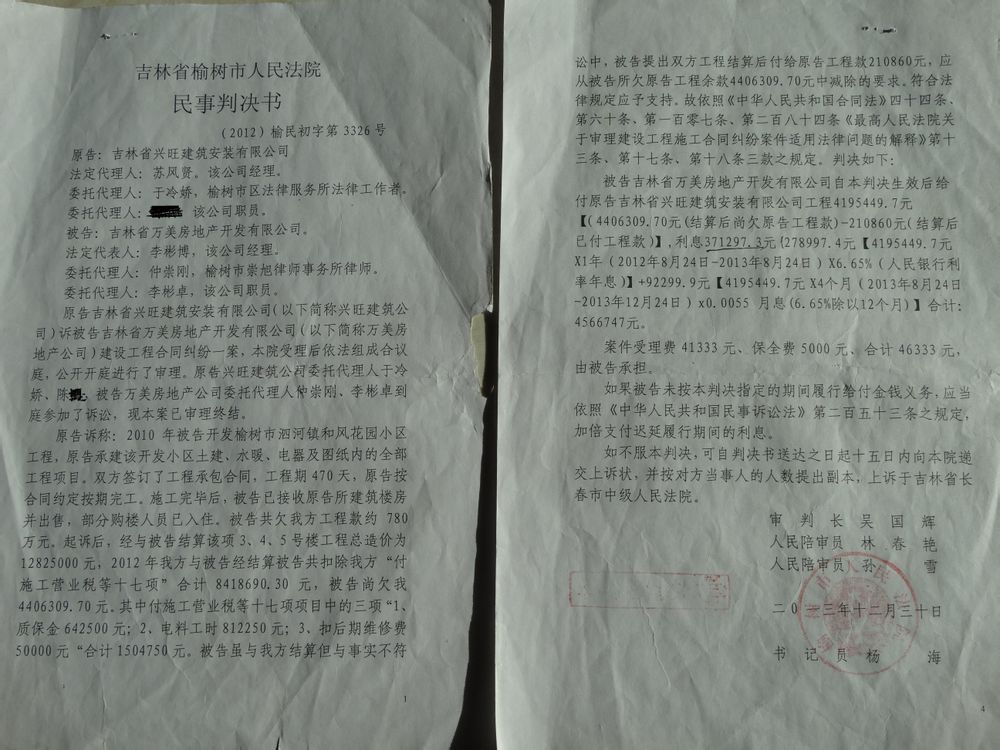 吉林省榆树市人民法院
民事判决书
（2012）榆民初字第 3326 号
原告：吉林省兴旺建筑安装有限公司
法定代理人：苏风贤。该公司经理。
委托代理人：于冷娇，榆树市区法律服务所法律工作者。
委托代理人： 该公司职员。
被告：吉林省万美房地产开发有限公司。
法定代表人：李彬博，该公司经理。
委托代理人：仲崇刚，榆树市崇旭律师事务所律师。
委托代理人：李彬卓，该公司职员。
原告吉林省兴旺建筑安装有限公司(以下简称兴旺建筑公
司)诉被告吉林省万美房地产开发有限公司（以下简称万美房
地产公司）建设工程合同纠纷一案，本院受理后依法组成合议
庭，公开开庭进行了审理。原告兴旺建筑公司委托代理人于冷
娇、陈 被告万美房地产公司委托代理人仲崇刚、李彬卓到
庭参加了诉讼，现本案已审理终结。
原告诉称：2010 年被告开发榆树市泗河镇和风花园小区
工程，原告承建该开发小区土建、水暖、电器及图纸内的全部
工程项目。双方签订了工程承包合同，工程期 470 天，原告按
合同约定按期完工。施工完毕后，被告已接收原告所建筑楼房
并出售，部分购楼人员已入住。被告共欠我方工程款约 780
万元。起诉后，经与被告结算该项 3、4、5 号楼工程总造价为
12825000 元，2012 年我方与被告经结算被告共扣除我方“付
施工营业税等十七项” 合计 8418690.30 元，被告尚欠我
4406309.70 元。其中付施工营业税等十七项项目中的三项“1、
质保金 642500 元；2、电料工时 812250 元；3、扣后期维修费
50000 元“合计 1504750 元。被告虽与我方结算但与事实不符
1
讼中，被告提出双方工程结算后付给原告工程款210860元，应
从被告所欠原告工程余款4406309.70元中减除的要求。符合法
律规定应予支持。故依照《中华人民共和国合同法》四十四条、
第六十条、第一百零七条、第二百八十四条《最高人民法院关
于审理建设工程施工合同纠纷案件适用法律问题的解释》第十
三条、第十七条、第十八条三款之规定。判决如下：
被告吉林省万美房地产开发有限公司自本判决生效后给
付原告吉林省兴旺建筑安装有限公司工程4195449.7元
【（4406309.70元(结算后尚欠原告工程款)-210860元(结算后
已付工程款)】,利息371297.3元{278997.4元【4195449.7元
X1年（2012年8月24日-2013年8月24日）X6.65%（人民银行利
率年息)】+92299.9元【4195449.7元 X4个月（2013年8月24日
-2013年12月24日）x0.0055 月息(6.65%除以12个月)】合计:
4566747元。
案件受理费 41333 元、保全费 5000 元、合计 46333 元，
由被告承担。
如果被告未按本判决指定的期间履行给付金钱义务，应当
依照《中华人民共和国民事诉讼法》第二百五十三条之规定，
加倍支付迟延履行期间的利息。
如不服本判决，可自判决书送达之日起十五日内向本院递
交上诉状，并按对方当事人的人数提出副本，上诉于吉林省长
春市中级人民法院。
审 判 长 吴 国 辉
人民陪审员 林 春 艳
人民陪审员 孙 雪
二0一三年十二月三十日
书 记 员 杨 海
4